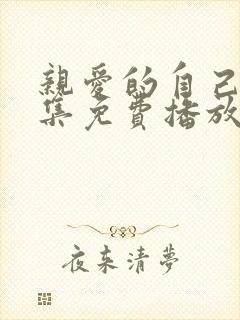 親愛的自己
集免費播放
夜来清夢